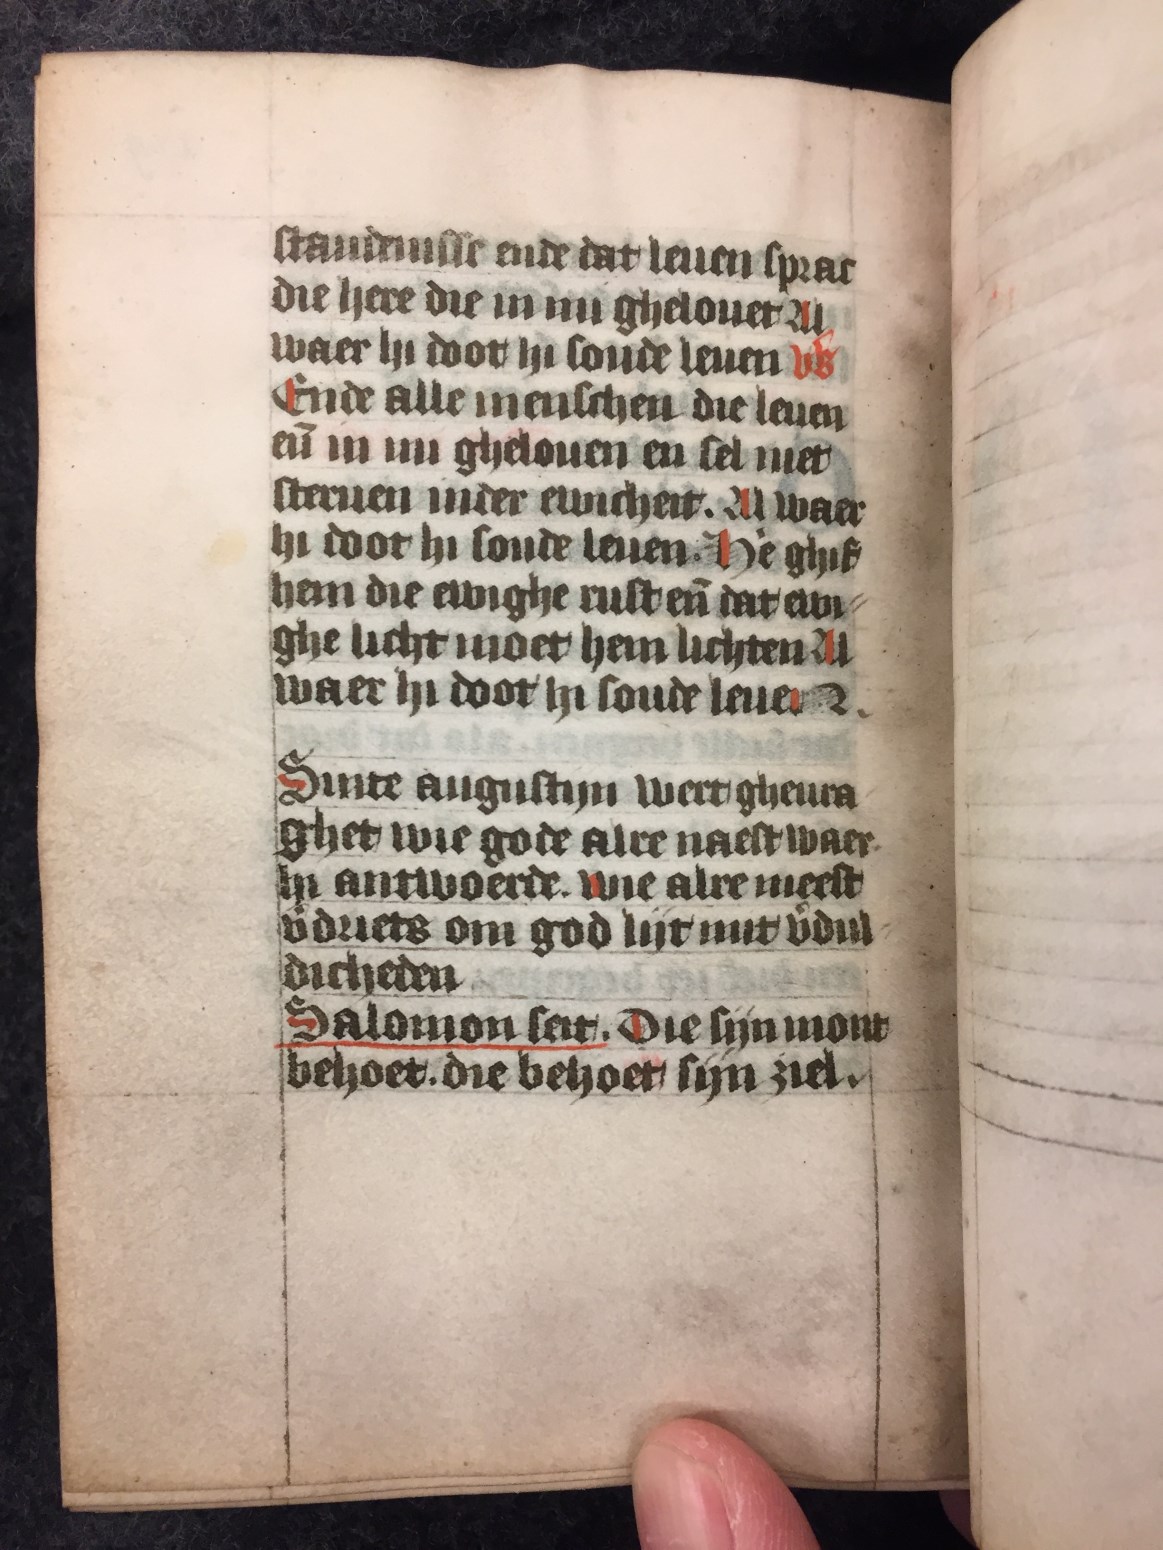 standenisse ende dat leuen sprac
die here die in mi ghelouet Al
waer hi doot hi soude leuen vs̃
Ende alle menschen die leuen
en̄ in mi ghelouen en sel niet
steruen inder ewicheit. Al waer
hi doot hi soude leuen. He ghif
hem die ewighe rust en̄ dat ewi⸗
ghe licht moet hem lichten Al
waer hi doot hi soude leuen
Sinte augustijn wert gheura
ghet wie gode alre naest waer
hi antwoerde. wie alre meest
v̄driets om god lijt mit v̄dul⸗
dicheden
Salomon seit. Die sijn mont
behoet. die behoet sijn ziel.